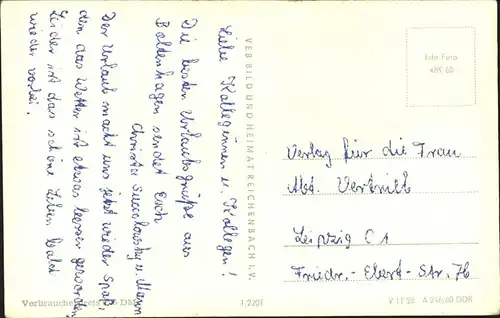 Liebe Kolleginnen u. Kollegen!
Die besten Urlaubsgrüße aus
Boltenhagen sendet Euch
Christa u. Mann
Der Urlaub macht uns jetzt wieder Spaß,
denn das Wetter ist etwas besser geworden.
Leider ist das schöne Leben bald
wieder vorbei.
VEB BILD UND HEIMAT REICHENBACH I. V.
Echt Foto
Verlag für die Frau
Abt. Vertrieb
Leipzig C 1
Friedr.-Ebert-Str. 76
Verbraucherpreis DM
V 11 28 A 246/60 DDR